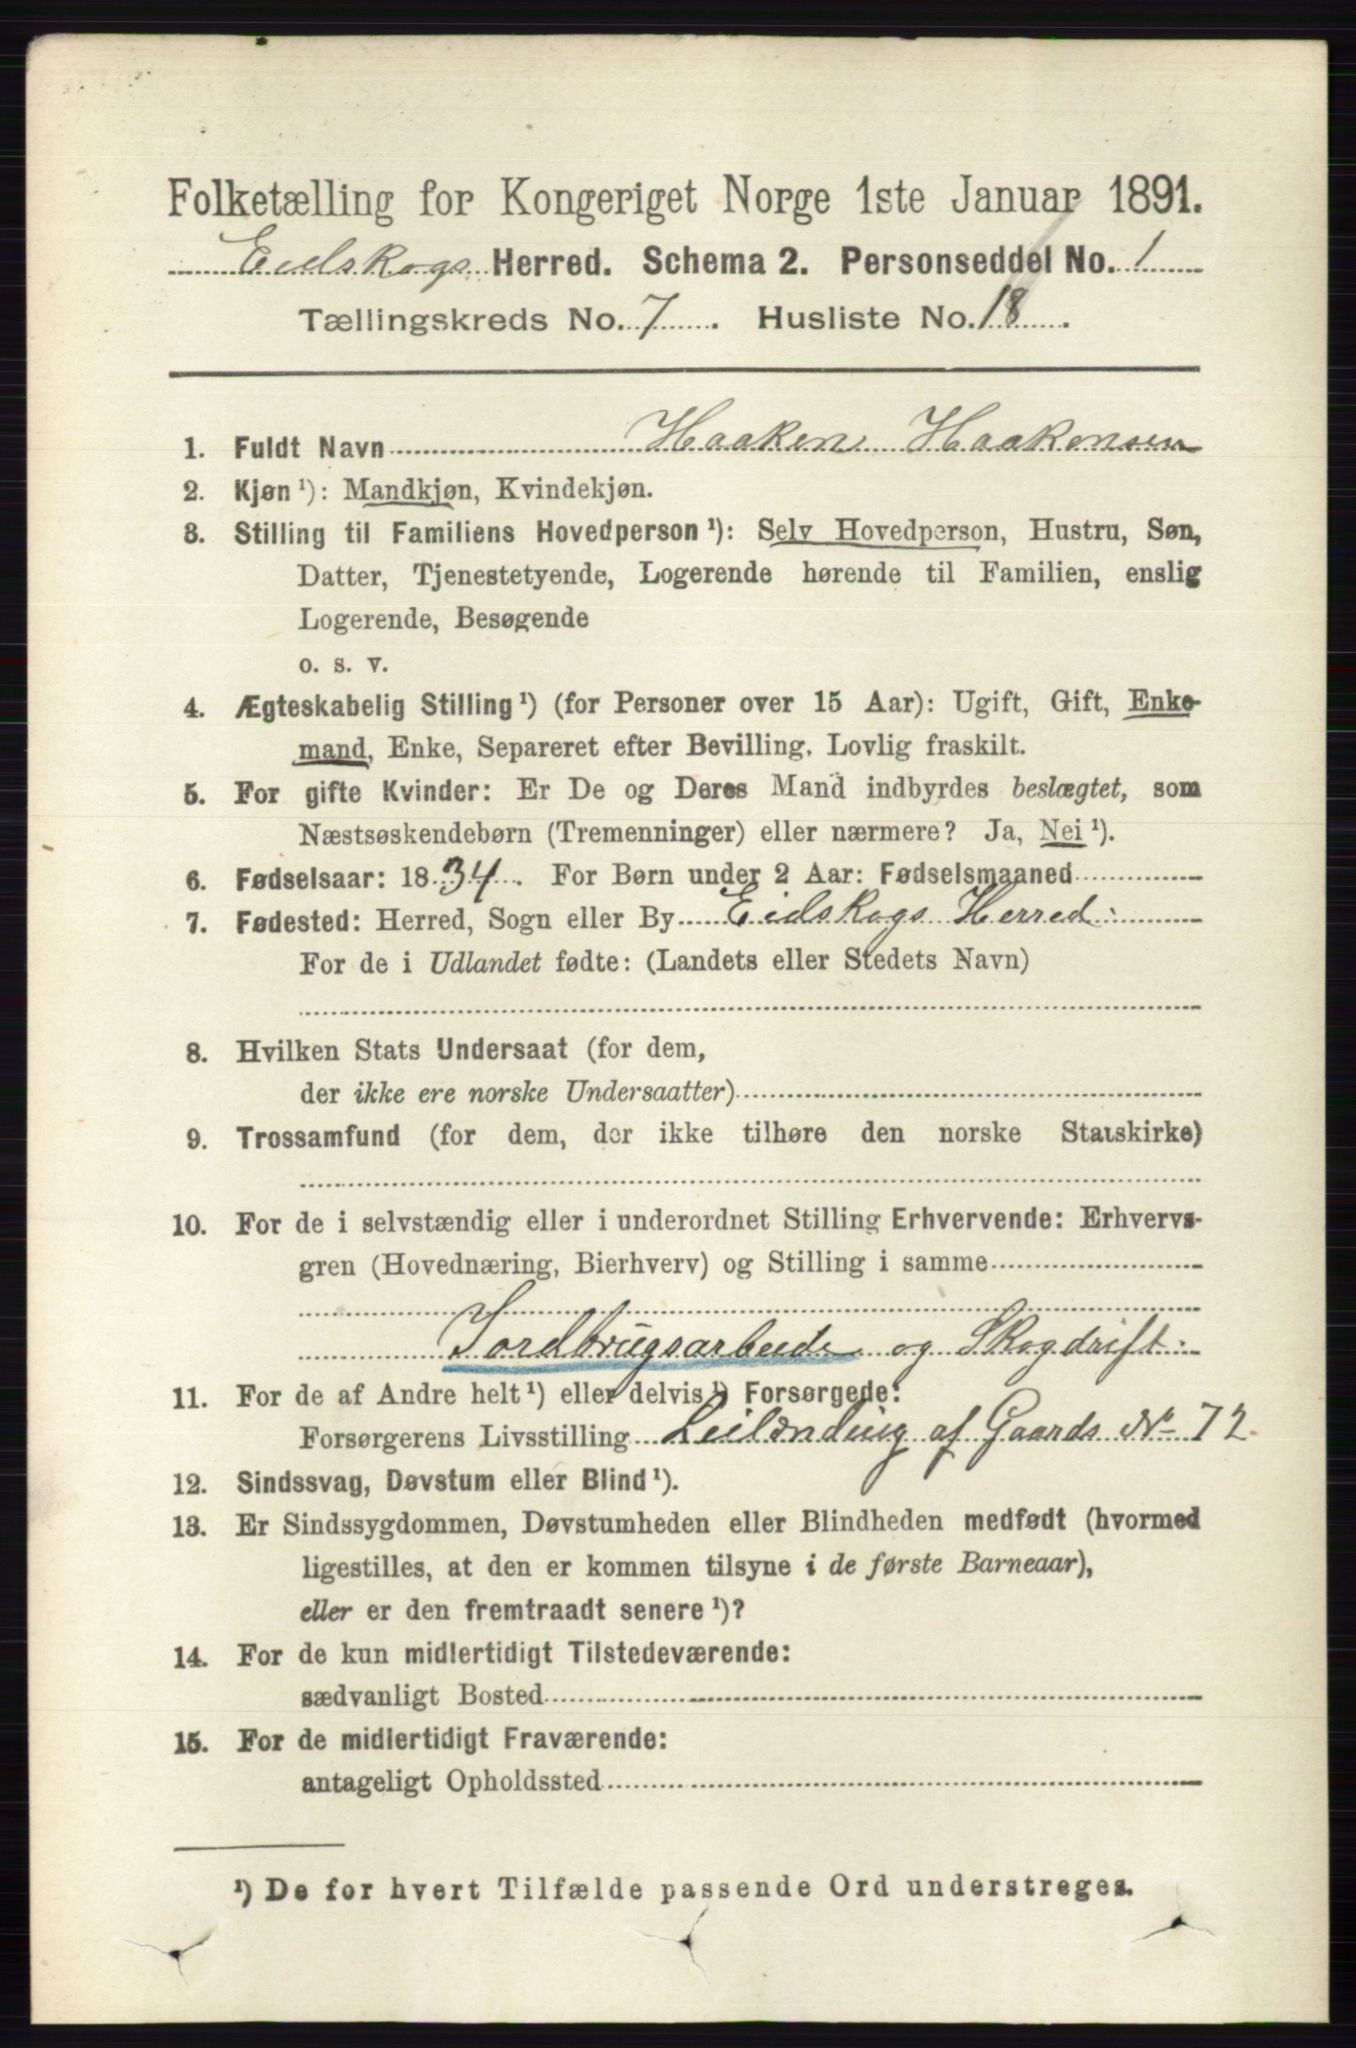 Folketælling for Kongeriget Norge 1ste Januar 1891.
Eidskogs Herred. Schema 2. Personseddel No. 1
Tællingskreds No. 7. Husliste No. 18.
1. Fuldt Navn Haaken Haakensen
2. Kjøn ¹): Mandkjøn, Kvindekjøn.
3. Stilling til Familiens Hovedperson ¹): Selv Hovedperson, Hustru, Søn,
Datter, Tjenestetyende, Logerende hørende til Familien, enslig
Logerende, Besøgende
o. s. v.
4. Ægteskabelig Stilling ¹) (for Personer over 15 Aar): Ugift, Gift, Enke-
mand, Enke, Separeret efter Bevilling. Lovlig fraskilt.
5. For gifte Kvinder: Er De og Deres Mand indbyrdes beslægtet, som
Næstsøskendebørn (Tremenninger) eller nærmere? Ja, Nei ¹).
6. Fødselsaar: 1834. For Børn under 2 Aar: Fødselsmaaned
7. Fødested: Herred, Sogn eller By Eidskogs Herred.
For de i Udlandet fødte: (Landets eller Stedets Navn)
8. Hvilken Stats Undersaat (for dem,
der ikke ere norske Undersaatter)
9. Trossamfund (for dem, der ikke tilhøre den norske Statskirke)
10. For de i selvstændig eller i underordnet Stilling Erhvervende: Erhvervs-
gren (Hovednæring, Bierhverv) og Stilling i samme
Jordbrugsarbeide og Skogdrift.
11. For de af Andre helt ¹) eller delvis ¹) Forsørgede:
Forsørgerens Livsstilling Leilænding af Gaards No 72.
12. Sindssvag, Døvstum eller Blind ¹).
13. Er Sindssygdommen, Døvstumheden eller Blindheden medfødt (hvormed
ligestilles, at den er kommen tilsyne i de første Barneaar),
eller er den fremtraadt senere ¹)?
14. For de kun midlertidigt Tilstedeværende:
sædvanligt Bosted
15. For de midlertidigt Fraværende:
antageligt Opholdssted
¹) De for hvert Tilfælde passende Ord understreges.